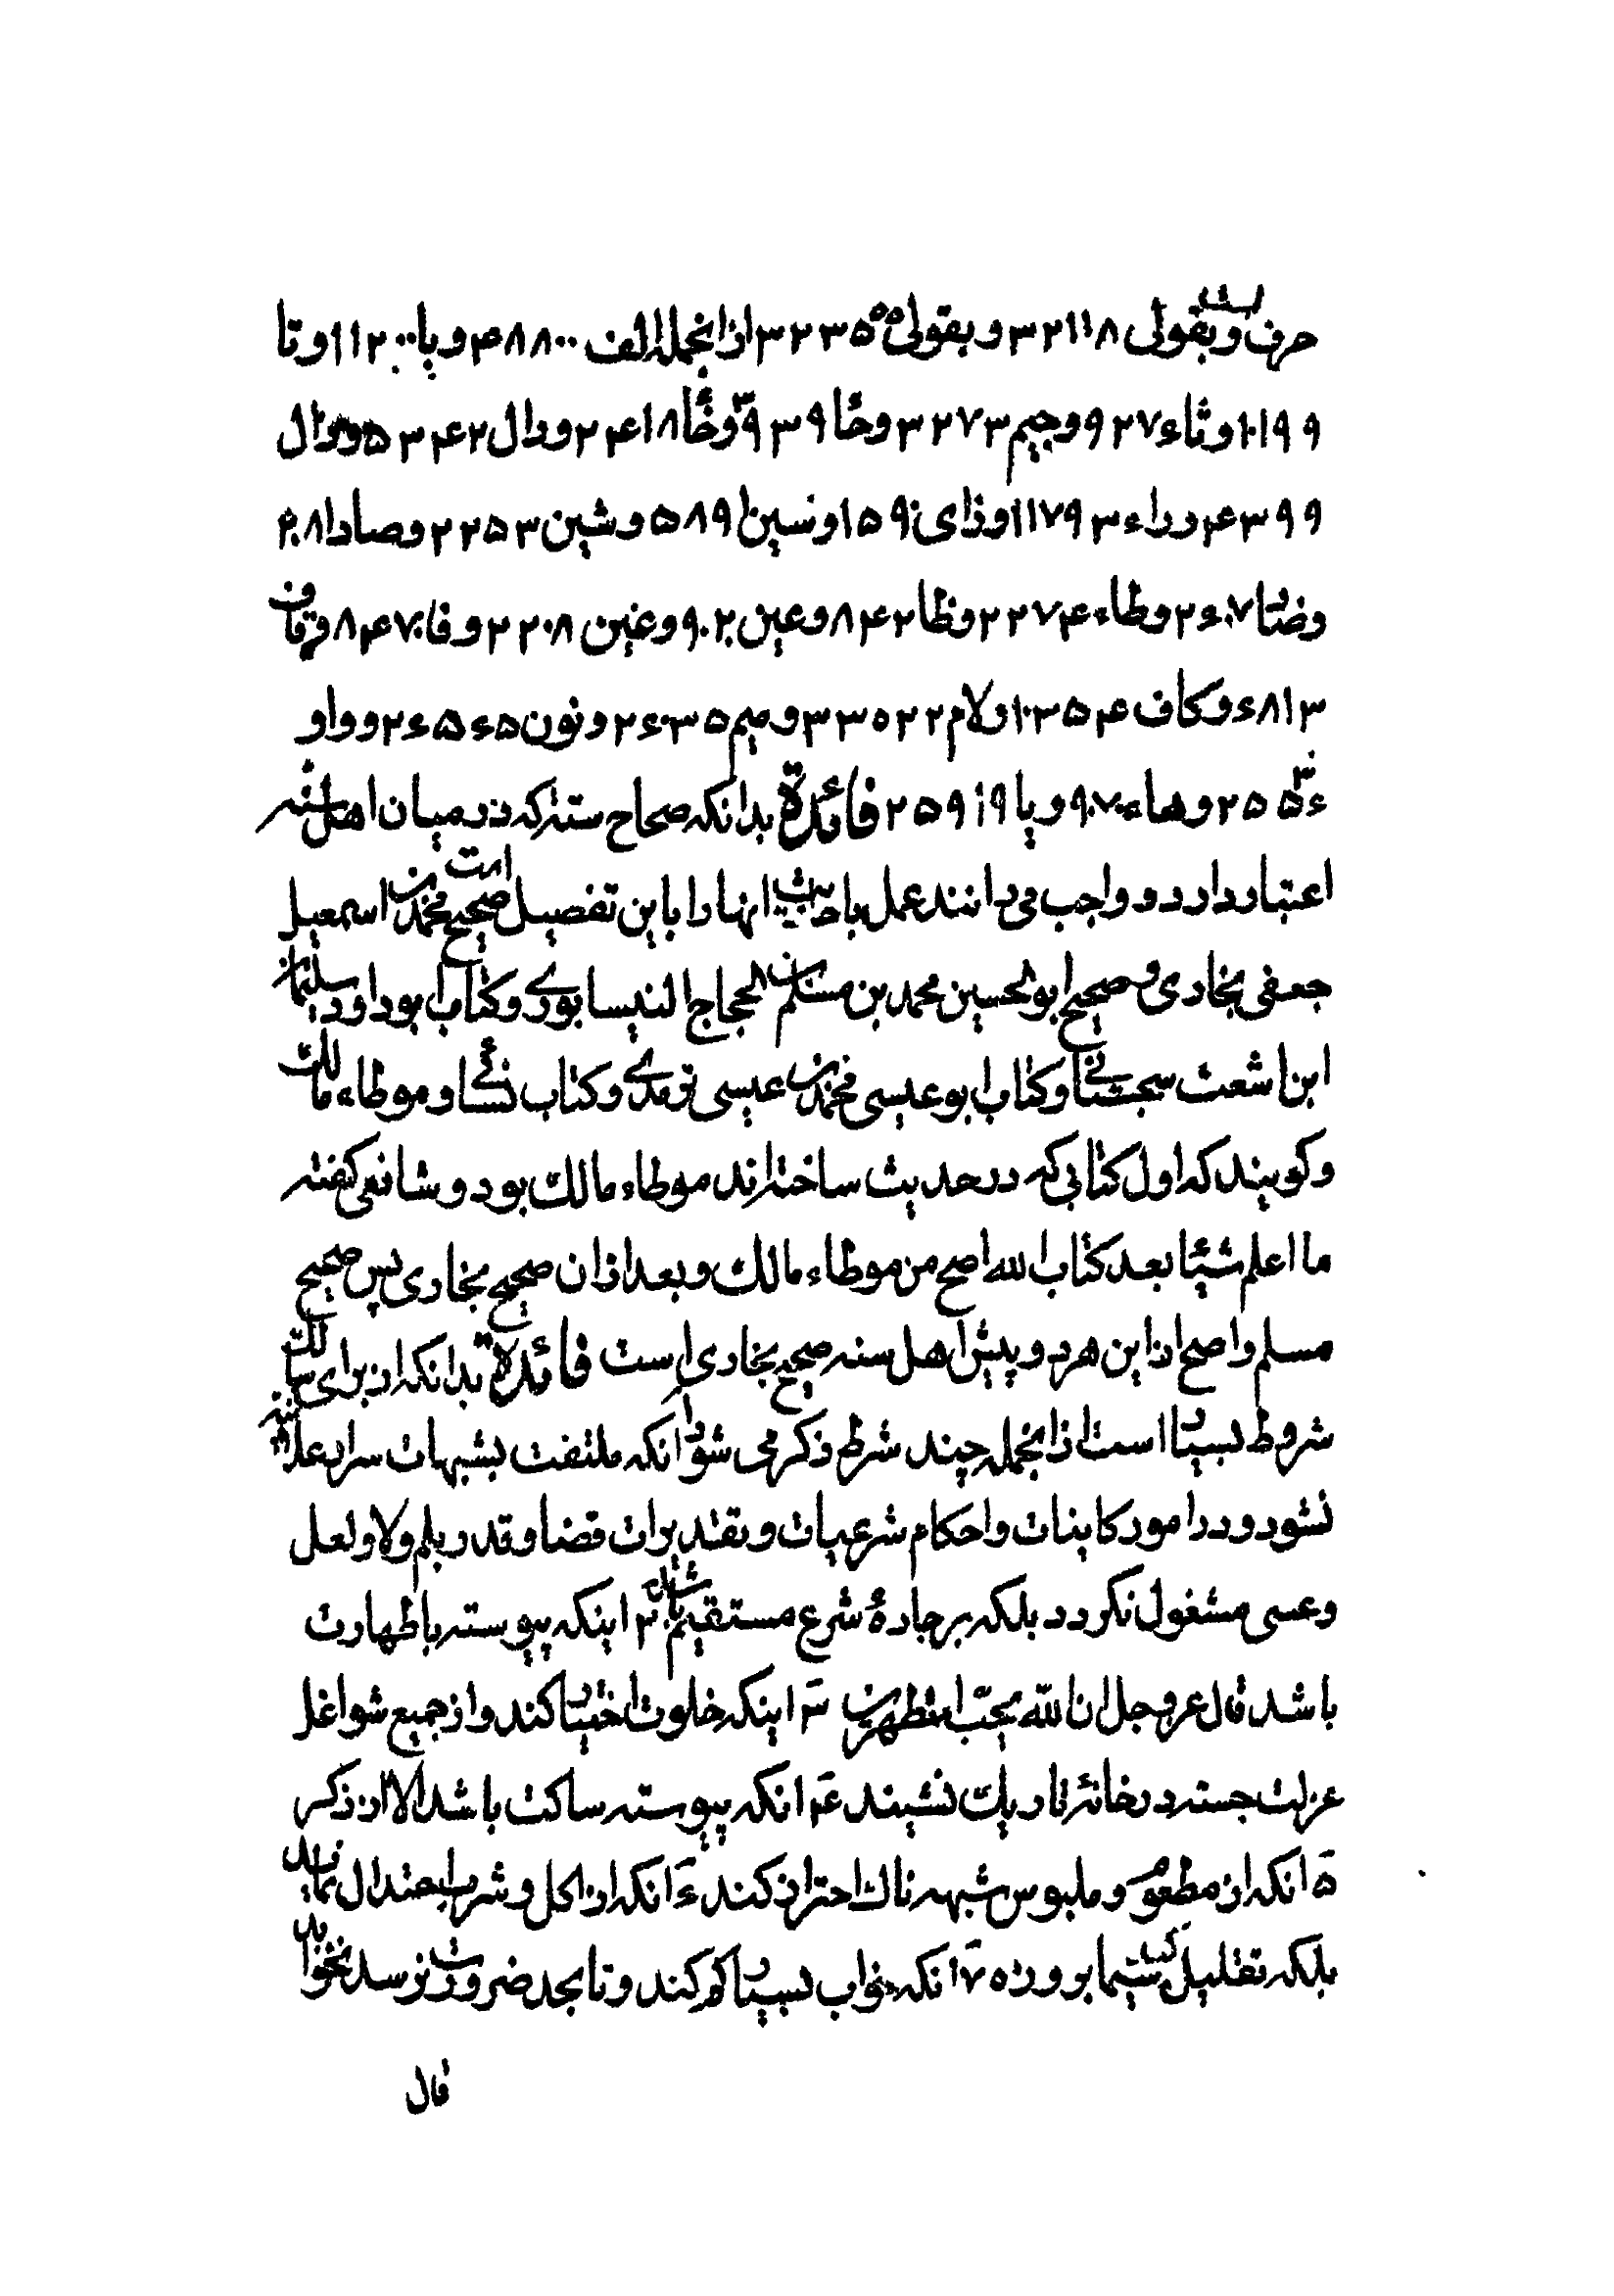 حرف است و بقولی ۳۲۱۱۸ و بقولی ۳۲۳۵۵۵ ازانجمله الف ۴۸۸۰۰ و با ۱۱۲۰۰ و تا
۱۰۱۹۹ و ثاء ۹۲۷ و جیم ۳۲۷۳ و حا ۳۹۳۹ و خا ۲۴۱۸ و دال ۵۳۴۲ و ذال
۴۳۹۹ و راء ۱۱۷۹۳ و زای ۱۵۹۰ و سین ۵۸۹۱ و شین ۲۲۵۳ و صاد ۲۰۸۱
و ضاد ۲۶۰۷ و طاء ۲۲۷۴ و ظا ۸۴۲ و عین ۹۰۲۰ و غین ۲۲۰۸ و فا ۸۴۷۰ و قاف
۶۸۱۳ و کاف ۱۰۳۵۴ و لام ۳۳۵۲۲ و میم ۲۶۰۳۵ و نون ۲۶۵۶۵ و واو
۲۵۵۳۶ و هاء ۹۰۷۰ و یا ۲۵۹۱۹ فائدة بدانکه صحاح سته که در میان اهل سنه
اعتبار دارد و واجب می‌دانند عمل باحادیث انها را باین تفصیل است صحیح محمد بن اسمعیل
جعفی بخاری و صحیح ابوالحسین محمد بن مسلم بن الحجاج النیسابوری و کتاب ابوداود سلیمان
ابن اشعث سجستانی و کتاب ابو عیسی محمد بن عیسی ترمدی و کتاب نسائی و موطاء مالک
و کویند که اول کتابی که در حدیث ساخته‌اند موطاء مالک بود و شافعی کفته
ما اعلم شیئا بعد کتاب الله اصح من موطاء مالک و بعد ازان صحیح بخاری پس صحیح
مسلم و اصح ازاین هردو پیش اهل سنه صحیح بخاری است فائدة بدانکه از برای سالک
شروط بسیار است ازانجمله چند شرط ذکر می شود ا انکه ملتفت بشبهات
نشود و در امور کاینات و احکام شرعیات و تقدیرات قضا و قدر بلم و لا و لعل
و عسی مشغول نکردد بلکه بر جادهٔ شرع مستقیم باشد ۲ اینکه پیوسته باطهارت
باشد قال عز و جل ان الله یحب المتطهرین ۳ اینکه خلوت اختیار کند و از جمیع شواغل
عزلت جسته در خانهٔ تاریک نشیند ۴ انکه پیوسته ساکت باشد الا از ذکر
۵ انکه از مطعوم و ملبوس شبهه ناک احتراز کند ۶ انکه از اکل و شرب اعتدال نماید
بلکه تقلیل کند سیما بروزه ۷ انکه خواب بسیار کم کند و تا بحد ضرورت نرسد نخوابد
قال